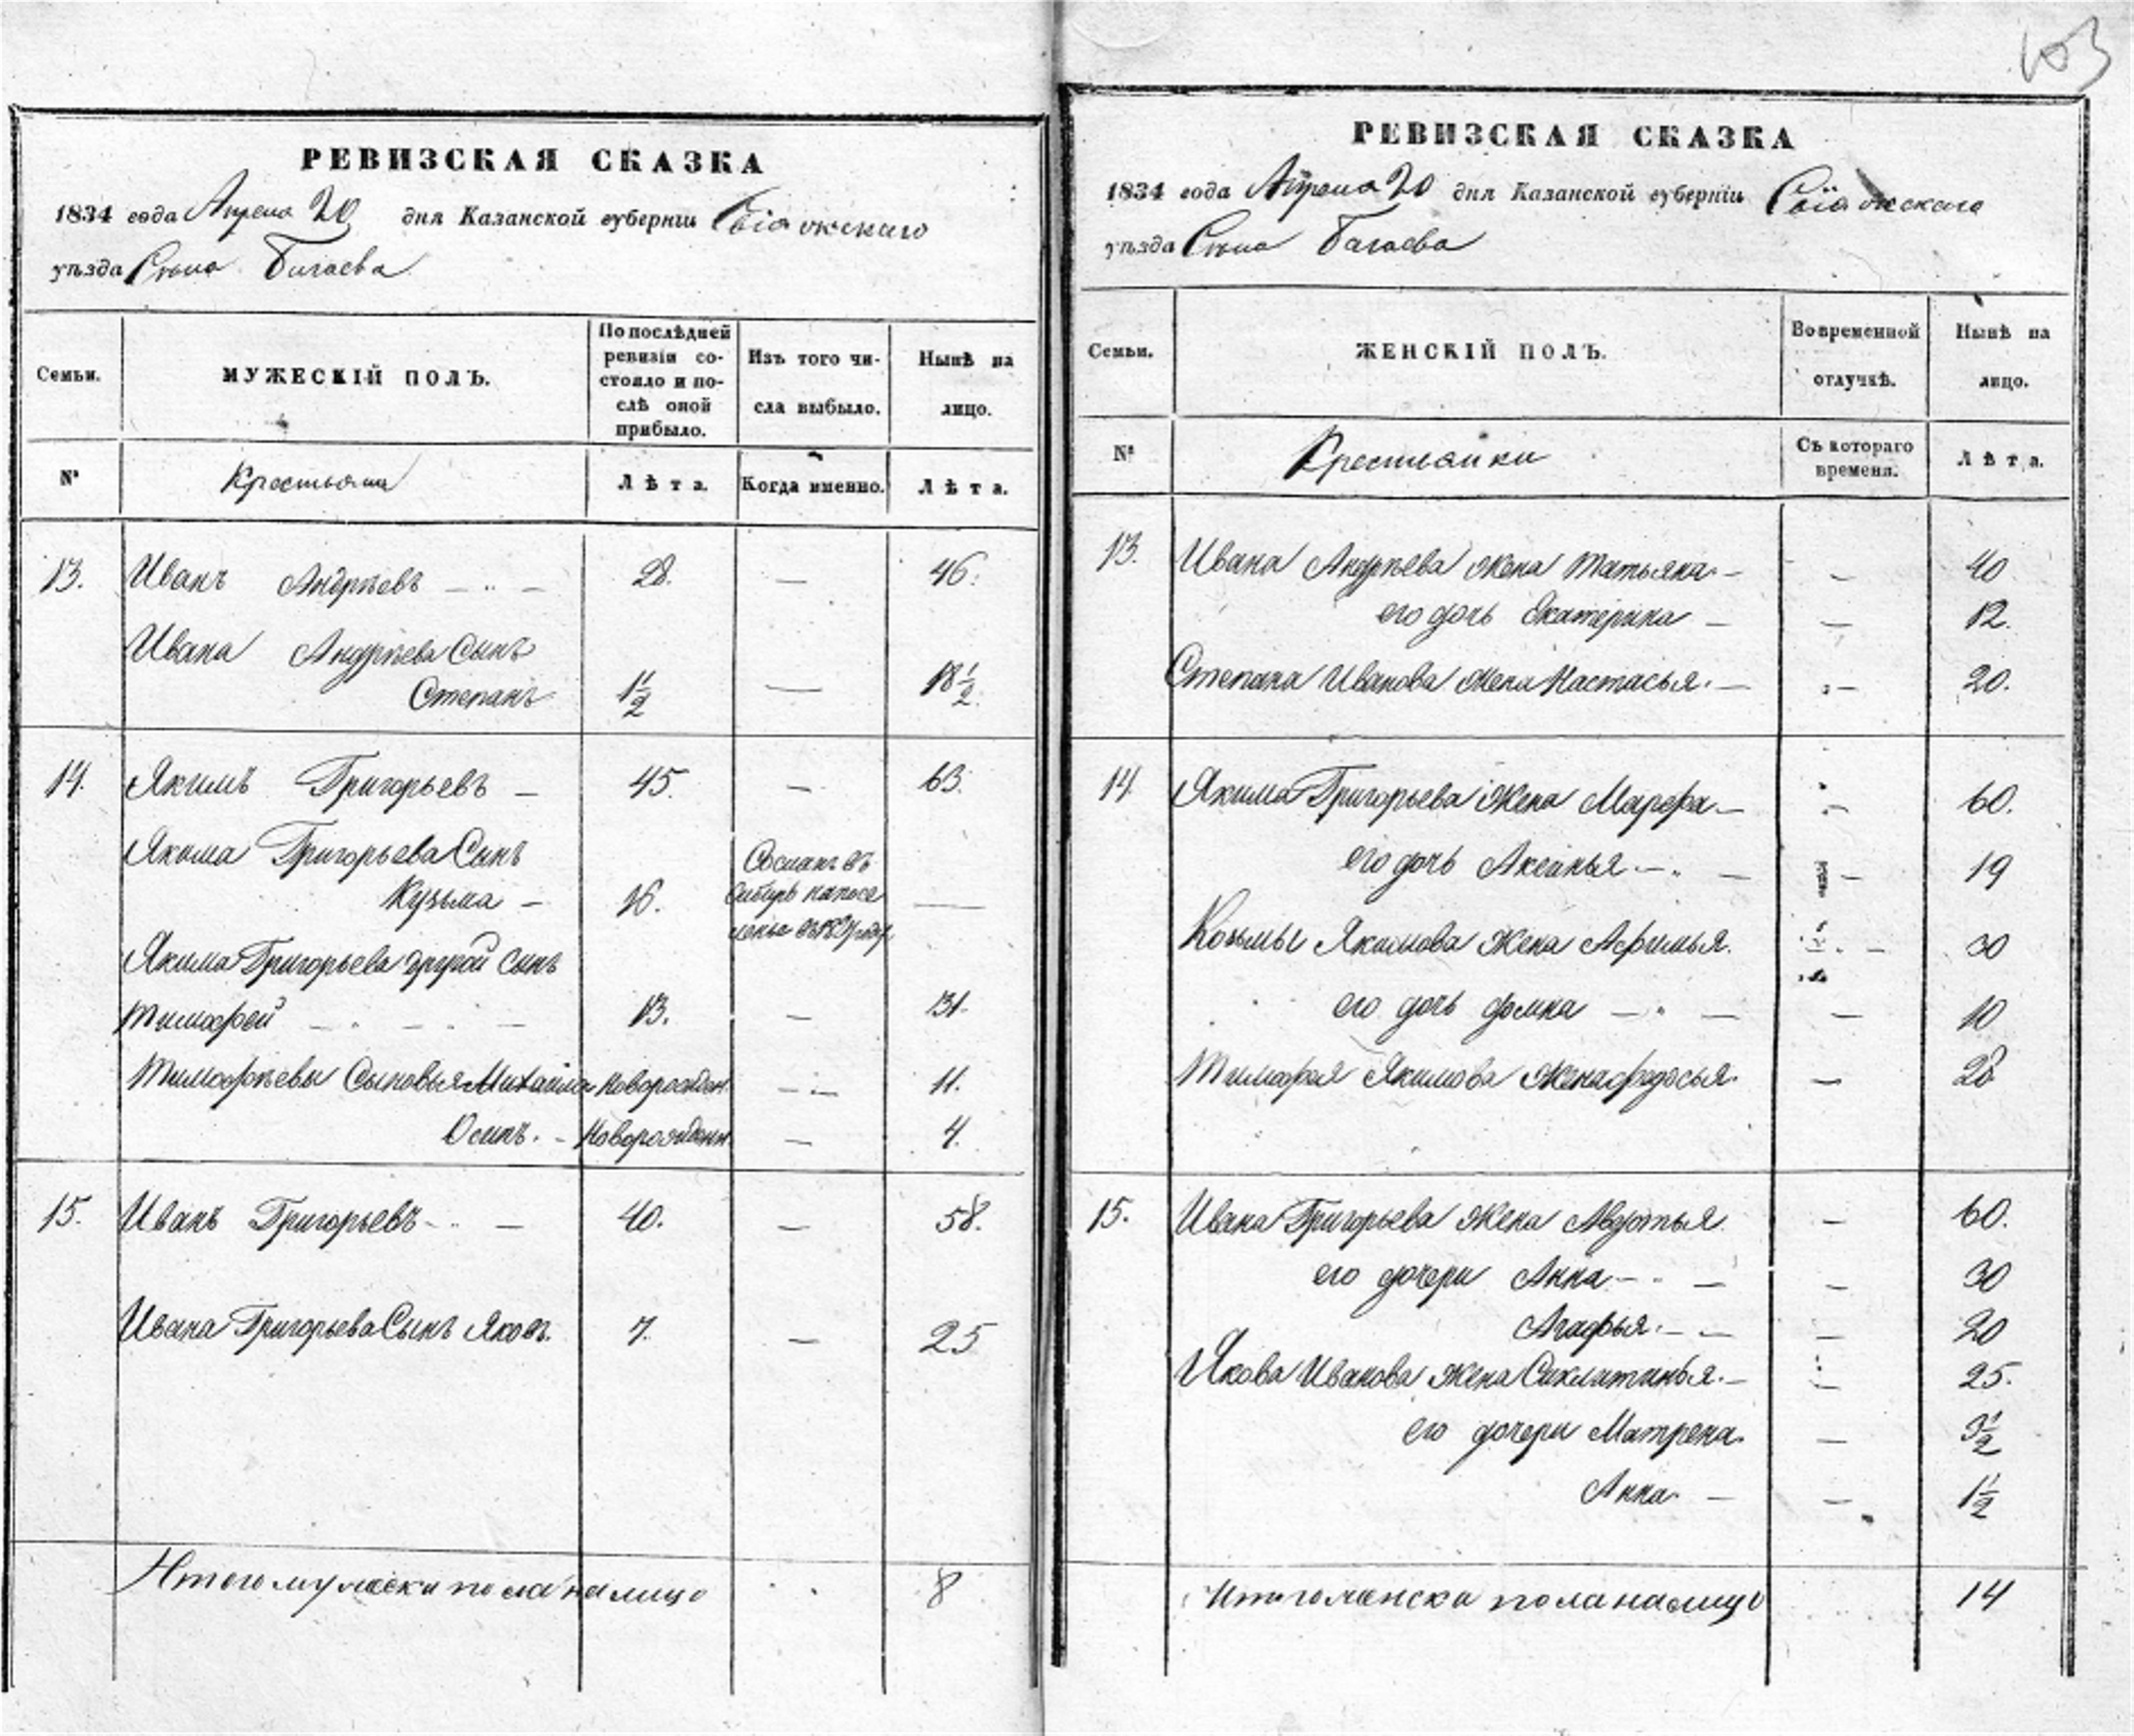 103
РЕВИЗСКАЯ СКАЗКА
1834 года Апреля 20 дня Казанской губерніи Свіяжскаго
уѣзда Села Бигаева
Семьи. МУЖЕСКІЙ ПОЛЪ. По послѣдней ревизіи состояло и послѣ оной прибыло. Изъ того числа выбыло. Нынѣ на лицо.
№ Крестьяни Лѣта. Когда именно. Лѣта.
13. Иванъ Андрѣевъ — 28. — 46.
Ивана Андрѣева Сынъ
Степанъ 1 1/2 — 18 1/2
14. Якимъ Григорьевъ — 45. — 63.
Якима Григорьева Сынъ
Кузьма — 16. Сосланъ въ Сибирь на поселенье въ году —
Якима Григорьева другой сынъ
Тимофей — 13. — 31.
Тимофѣевы Сыновья Михаила новорожден — 11.
Осипъ. — Новорожденн — 4.
15. Иванъ Григорьевъ — 40. — 58.
Ивана Григорьева Сынъ Яковъ. 7. — 25
Итого мужеска пола на лицо 8
РЕВИЗСКАЯ СКАЗКА
1834 года Апреля 20 дня Казанской губерніи Свіяжскаго
уѣзда Села Багаева
Семьи. ЖЕНСКІЙ ПОЛЪ. Во временной отлучкѣ. Нынѣ на лицо.
№ Крестьянки Съ котораго времени. Лѣта.
13. Ивана Андрѣева жена Татьяна — — 40
его дочь Екатерина — — 12.
Степана Иванова жена Настасья. — — 20.
14 Якима Григорьева жена Марефа — — 60.
его дочь Аксинья — — 19
Козьмы Якимова жена Афимья. — 30
его дочь Домна — — 10
Тимофея Якимова жена Федосья. — 28
15. Ивана Григорьева жена Авдотья — 60.
его дочери Анна — — 30
Агафья — — 20
Якова Иванова жена Сиклитинья. — — 25.
его дочери Матрена — 3 1/2
Анна — — 1 1/2
Итого женска пола на лицо 14